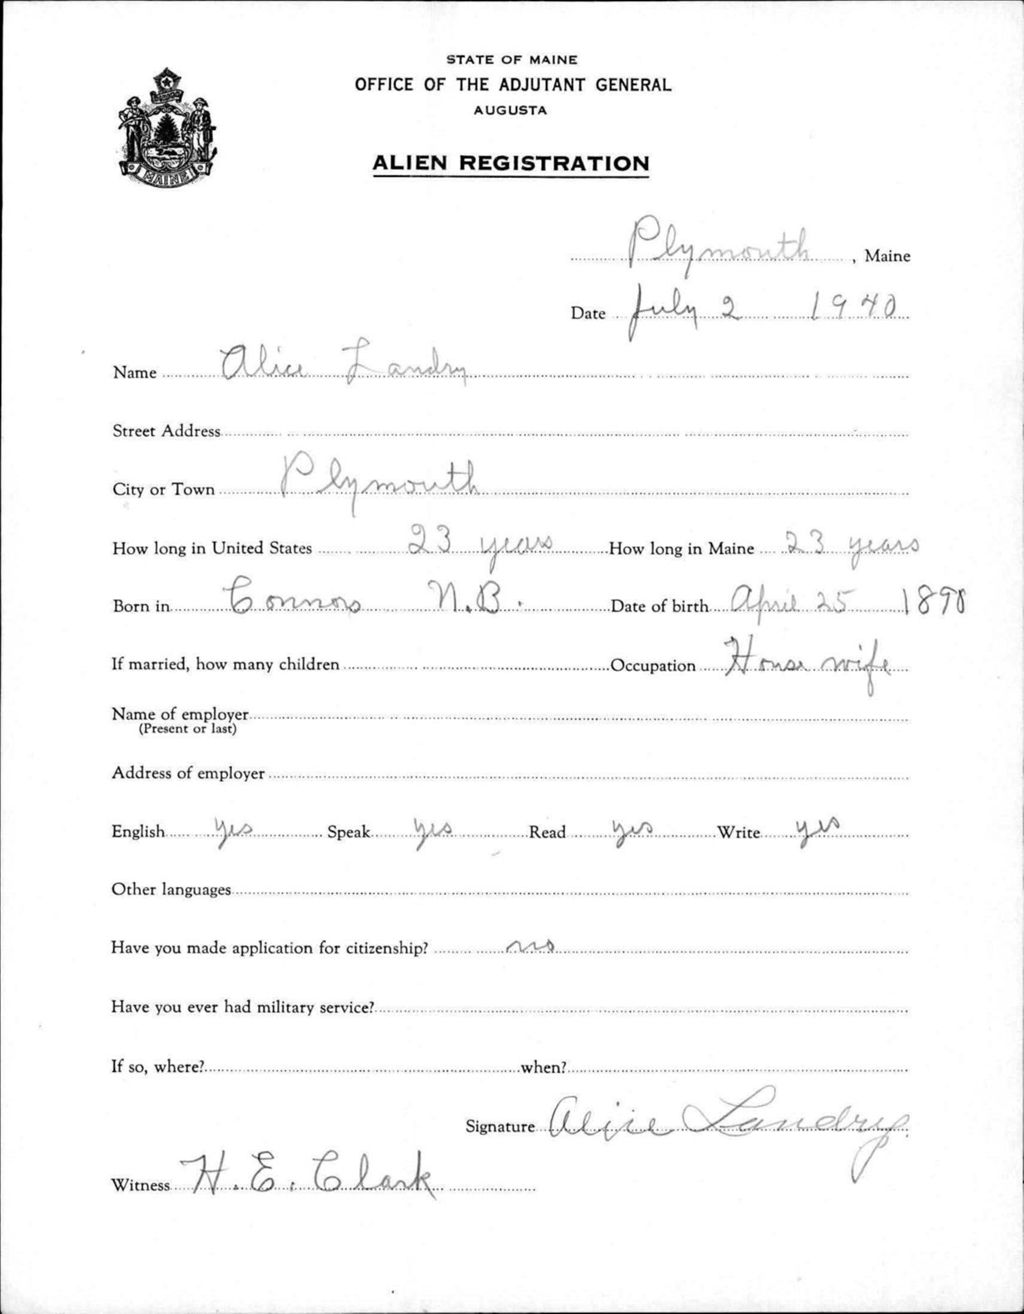 STATE OF MAINE
OFFICE OF THE ADJUTANT GENERAL
AUGUSTA
ALIEN REGISTRATION
MAINE
Plymouth, Maine
Date July 2 1940
Name Alice Landry
Street Address
City or Town Plymouth
How long in United States 23 years How long in Maine 23 years
Born in Connors N.B. Date of birth April 25 1890
If married, how many children Occupation House wife
Name of employer
(Present or last)
Address of employer
English yes Speak yes Read yes Write yes
Other languages
Have you made application for citizenship? no
Have you ever had military service?
If so, where? when?
Signature Alice Landry
Witness H. E. Clark